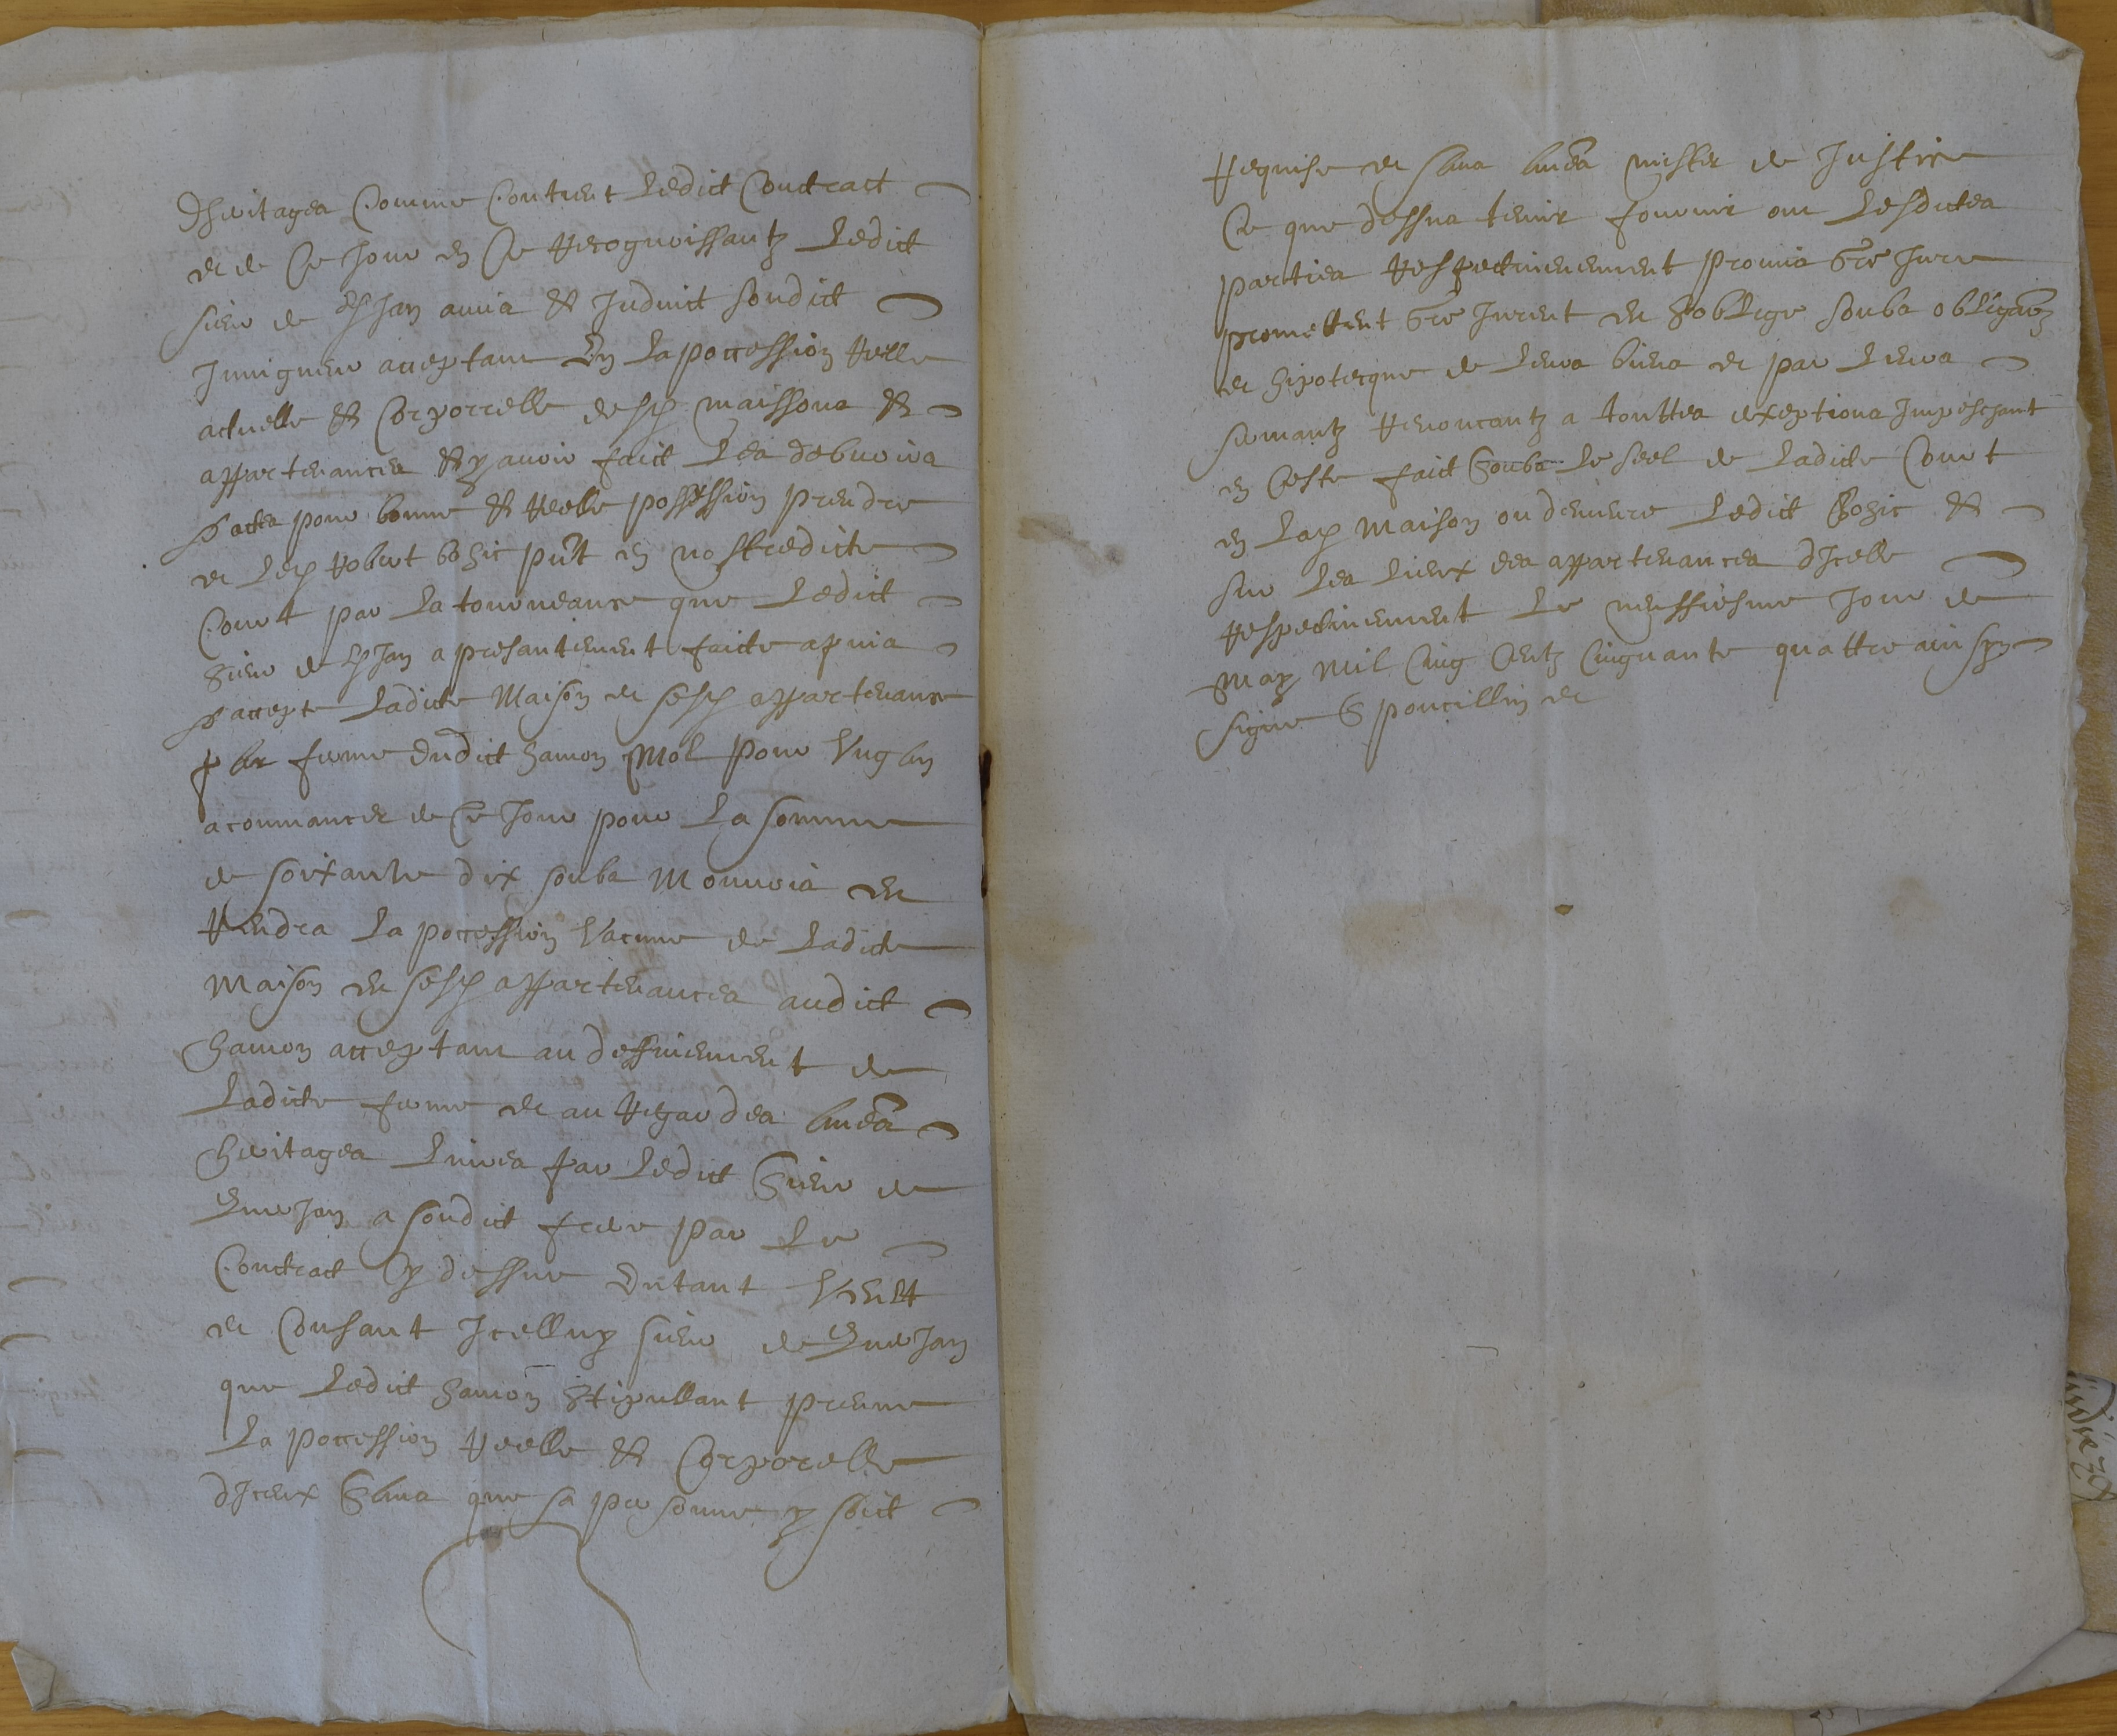 dheritages comme contient ledict contract
et de ce jour en ce recognoissantz ledict
sieur de Jan amis et induict sondict
juuigneur acceptant en la poccession reelle
actuelle et corporrelle desd maissons et
appartenances et y avoir faict les debvoirs
dactes pour bonne et reelle possession prendre
et led Robert bohic pnt en nostredicte
court par la tourneance que ledict
sieur de Jan a presantement faicte a prins
daccepte ladicte maison et sesd appartenance
par ferme dudict hamon mol pour ung an
a commancer de ce jour pour la somme
de soixante dix soubs monnois et
rendra la poccession vacune de ladicte
maison et sesd appartenances audict
hamon acceptant au deffinement de
ladicte ferme et au regard des aues
heritages livres par ledict sieur de
Jan a sondict frere par le
contract cy dessur dutant veult
et consant icelluy sieur de Jan
que ledict hamon stipullant prenne
la poccession reelle et corporelle
diceux sans que sa personne y soict
requise et sans aues mister de justice
ce que dessus tenir fournir ont lesdictes
parties respectivement promis gre jure
promettent gre jurent et soblige soubs obligaon
et hipotecque de leurs biens et par leurs
sermantz renoncantz a touttes exeptions impeschant
en ceste faict soubs le seel de ladicte court
en lad maison ou demeure ledict bohic et
sur les lieux des appartenances dicelle
respectivement le neuffiesme jour de
may mil cinq centz cinquante quattre ainsy
signe G poucillin et